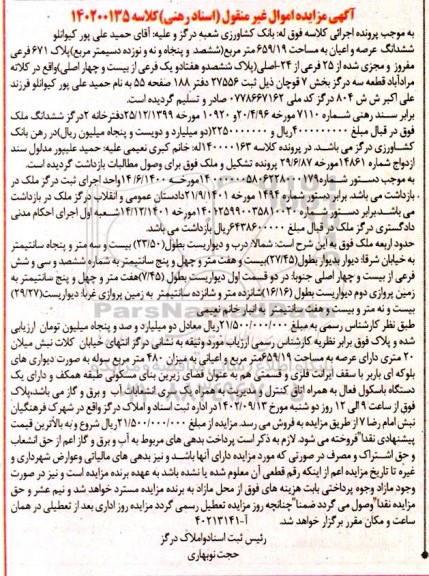 آگهی مزایده اموال غیر منقول (اسناد رهنی) کلاسه ۱۴۰۲۰۰۱۳۵
به موجب پرونده اجرائی کلاسه فوق له: بانک کشاورزی شعبه درگز و علیه: آقای حمید علی پور کیوانلو
ششدانگ عرصه و اعیان به مساحت ۶۵۹/۱۹ متر مربع (ششصد و پنجاه و نه و نوزده دسیمتر مربع) پلاک ۶۷۱ فرعی
مفروز و مجزی شده از ۲۵ فرعی از ۲۴-اصلی (پلاک ششصدو هفتادو یک فرعی از بیست و چهار اصلی) واقع در کلاته
مرادآباد قطعه سه درگز بخش ۷ قوچان ذیل ثبت ۲۷۵۵۶ دفتر ۱۸۸ صفحه ۵۵ به نام حمید علی پور کیوانلو فرزند
علی اکبر ش ش ۸۰۴ درگز کد ملی ۰۷۷۸۶۶۷۱۶۲ صادر و تسلیم گردیده است.
برابر سند رهنی شماره ۷۱۱۰ مورخه ۲۰/۴/۹۶ و ۱۰۹۲۰ مورخه ۲۵/۱۲/۱۳۹۹ دفترخانه ۲ درگز ششدانگ ملک
فوق در قبال مبلغ ۴۰۰۰۰۰۰۰۰۰ ریال و ۲۲۵۰۰۰۰۰۰۰ (دو میلیارد و دویست و پنجاه میلیون ریال) در رهن بانک
کشاورزی درگز می باشد. در پرونده کلاسه ۱۴۰۰۰۰۱۶۳ له: خانم کبری نعیمی علیه: حمید علیپور مدلول سند
ازدواج شماره ۱۴۸۶۱ مورخه ۲۹/۶/۸۷ پرونده تشکیل و ملک فوق برای وصول مطالبات بازداشت گردیده است.
به موجب دستور شماره مورخه ۱۴/۶/۱۴۰۰ واحد اجرای ثبت درگز ملک در
بازداشت می باشد. برابر دستور شماره ۱۴۹۴ مورخه ۲۱/۹/۱۴۰۱ دادستان عمومی و انقلاب درگز ملک در بازداشت
می باشد برابر دستور شماره مورخه ۱۴/۱۲/۱۴۰۱ شعبه اول اجرای احکام مدنی
دادگستری درگز ملک در قبال مبلغ ۶۴۳۸۶۰۰۰۰۰ ریال بازداشت می باشد.
حدود اربعه ملک فوق به این شرح است: شمالا: درب و دیواریست بطول (۲۳/۵۰) بیست و سه متر و پنجاه سانتیمتر
به خیابان شرقا: دیوار بدیوار بطول (۲۷/۴۵) بیست و هفت متر و چهل و پنج سانتیمتر به شماره ششصد و سی و شش
فرعی از بیست و چهار اصلی جنوبا: در دو قسمت اول دیواریست بطول (۷/۴۵) هفت متر و چهل و پنج سانتیمتر به
زمین پروازی دوم دیواریست بطول (۱۶/۱۶) شانزده متر و شانزده سانتیمتر به زمین پروازی غربا: دیواریست (۲۹/۲۷)
بیست و نه متر و بیست و هفت سانتیمتر به انبار خانم نعیمی
طبق نظر کارشناس رسمی به مبلغ ۲۱/۵۰۰/۰۰۰/۰۰۰ ریال معادل دو میلیارد و صد و پنجاه میلیون تومان ارزیابی
شده و پلاک فوق برابر نظریه کارشناس رسمی ارزیاب مورد وثیقه به نشانی درگز انتهای خیابان کلات نبش میلان
۲۰ متری دارای عرصه به مساحت ۶۵۹/۱۹ متر مربع و اعیانی به میزان ۴۸۰ متر مربع سوله به صورت دیواری های
بلوکه ای باربر با سقف ایرانت فلزی و قسمتی هم به عنوان فضای زیرین بنای مسکونی طبقه همکف و دارای یک
دستگاه باسکول فعال به همراه اتاق کنترل و مدیریت به همراه یک سری انشعابات آب و برق و گاز می باشد، پلاک
فوق از ساعت ۹ الی ۱۲ روز دو شنبه مورخ ۱۴۰۲/۰۹/۱۳ در اداره ثبت اسناد و املاک درگز واقع در شهرک فرهنگیان
نبش امام رضا ۷ از طریق مزایده به فروش می رسد. مزایده از مبلغ ۲۱/۵۰۰/۰۰۰/۰۰۰ ریال شروع و به بالاترین قیمت
پیشنهادی نقدا" فروخته می شود. لازم به ذکر است پرداخت بدهی های مربوط به آب و برق و گاز اعم از حق انشعاب
و حق اشتراک و مصرف در صورتی که مورد مزایده دارای آنها باشد و نیز بدهی های مالیاتی و عوارض شهرداری و
غیره تا تاریخ مزایده اعم از اینکه رقم قطعی آن معلوم شده یا نشده باشد به عهده برنده مزایده است و نیز در صورت
وجود مازاد وجوه پرداختی بابت هزینه های فوق از محل مازاد به برنده مزایده مسترد خواهد شد و نیم عشر و حق
مزایده نقدا" وصول می گردد ضمنا" چنانچه روز مزایده تعطیل رسمی گردد مزایده روز اداری بعد از تعطیلی در همان
ساعت و مکان مقرر برگزار خواهد شد. آ-۴۰۲۱۳۱۴۱
رئیس ثبت اسناد و املاک درگز
حجت نوبهاری